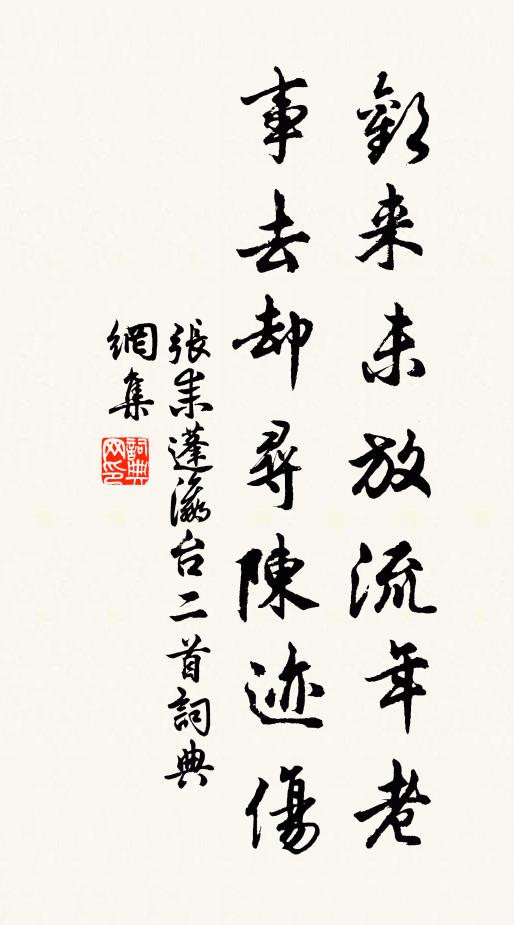 歡来未放流年老
事去却尋陳迹傷
張耒蓬瀛台二首詞典
網集
詞典網印